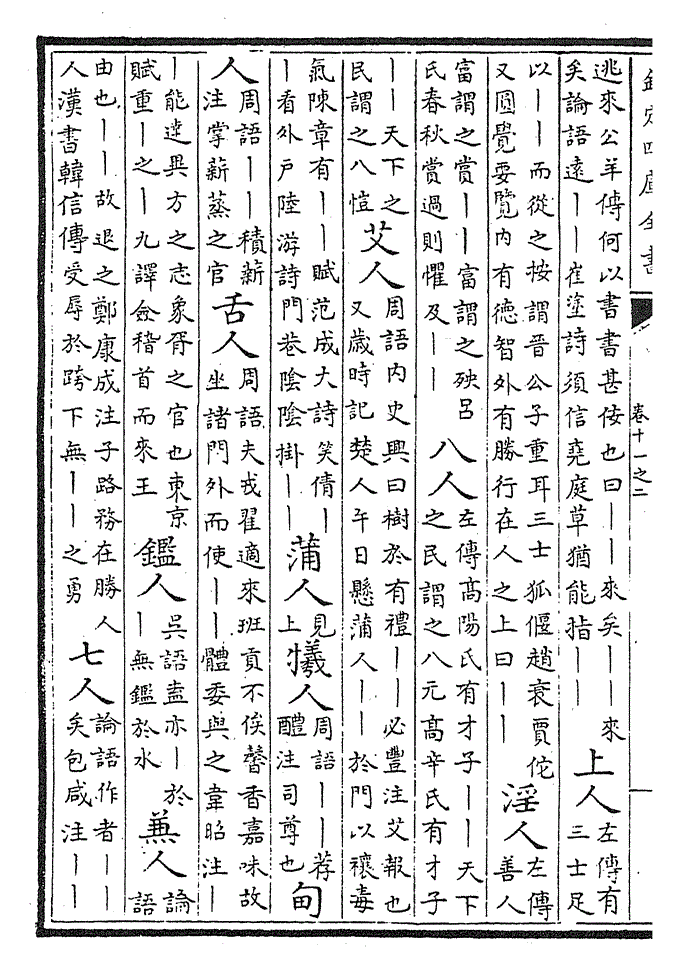 欽定四庫全書 卷十一之二
逃來公羊傳何以書書甚佞也曰丨丨來矣丨丨來
矣論語遠丨丨崔塗詩須信堯庭草猶能指丨丨
上人
左傳有
三士足
以丨丨而從之按謂晉公子重耳三士狐偃趙衰賈佗
又圓覺要覽内有德智外有勝行在人之上曰丨丨
淫人
左傳
善人
富謂之賞丨丨富謂之殃呂
氏春秋賞過則懼及丨丨
八人
左傳高陽氏有才子丨丨天下
之民謂之八元高辛氏有才子
丨丨天下之
民謂之八愷
艾人
周語内史興曰樹於有禮丨丨必豐注艾報也
又歲時記楚人午日懸蒲人丨丨於門以禳毒
氣陳章有丨丨賦范成大詩笑倩丨
丨看外戶陸游詩門巷陰陰掛丨丨
蒲人
見
上
犧人
周語丨丨荐
醴注司尊也
甸
人
周語丨丨積薪
注掌薪蒸之官
舌人
周語夫戎翟適來班貢不俟馨香嘉味故
坐諸門外而使丨丨體委與之韋昭注丨
丨能達異方之志象胥之官也東京
賦重丨之丨九譯僉稽首而來王
鑑人
吳語盍亦丨於
丨無鑑於水
兼人
論
語
由也丨丨故退之鄭康成注子路務在勝人
人漢書韓信傳受辱於跨下無丨丨之勇
七人
論語作者丨丨
矣包咸注丨丨